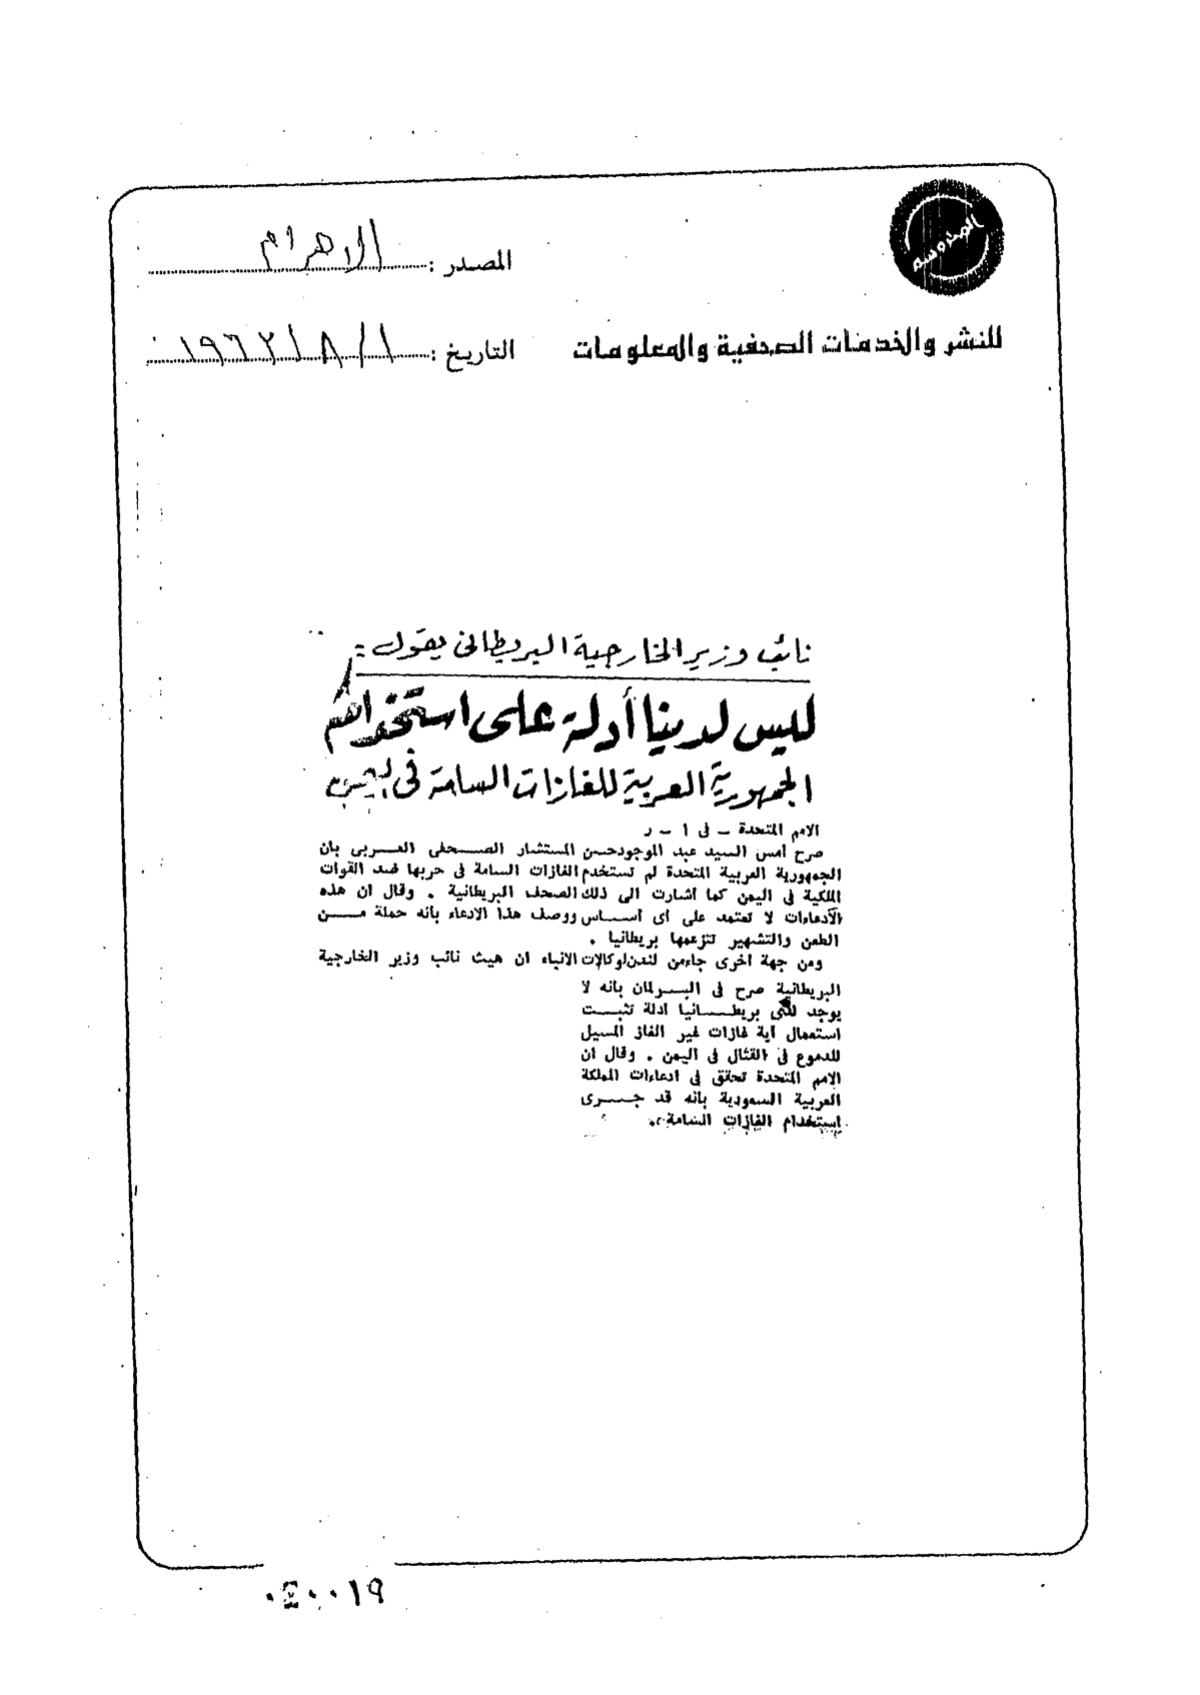 المحروسة
المصدر : الاهرام
للنشر والخدمات الصحفية والمعلومات
التاريخ : ١ / ٨ / ١٩٦٢
نائب وزير الخارجية البريطانى يقول :
ليس لدينا أدلة على استخدام
الجمهورية العربية للغازات السامة فى اليمن
الامم المتحدة - فى ١ - ر
صرح أمس السيد عبد الموجودحسن المستشار الصحفى العربى بان
الجمهورية العربية المتحدة لم تستخدم الغازات السامة فى حربها ضد القوات
الملكية فى اليمن كما أشارت الى ذلك الصحف البريطانية . وقال ان هذه
الادعاءات لا تعتمد على أى أساس ووصف هذا الادعاء بأنه حملة من
الطعن والتشهير تتزعمها بريطانيا .
ومن جهة اخرى جاءمن لندن لوكالات الانباء ان هيث نائب وزير الخارجية
البريطانية صرح فى البرلمان بأنه لا
يوجد لدى بريطانيا ادلة تثبت
استعمال أية غازات غير الغاز المسيل
للدموع فى القتال فى اليمن . وقال ان
الامم المتحدة تحقق فى ادعاءات المملكة
العربية السعودية بأنه قد جرى
استخدام الغازات السامة .